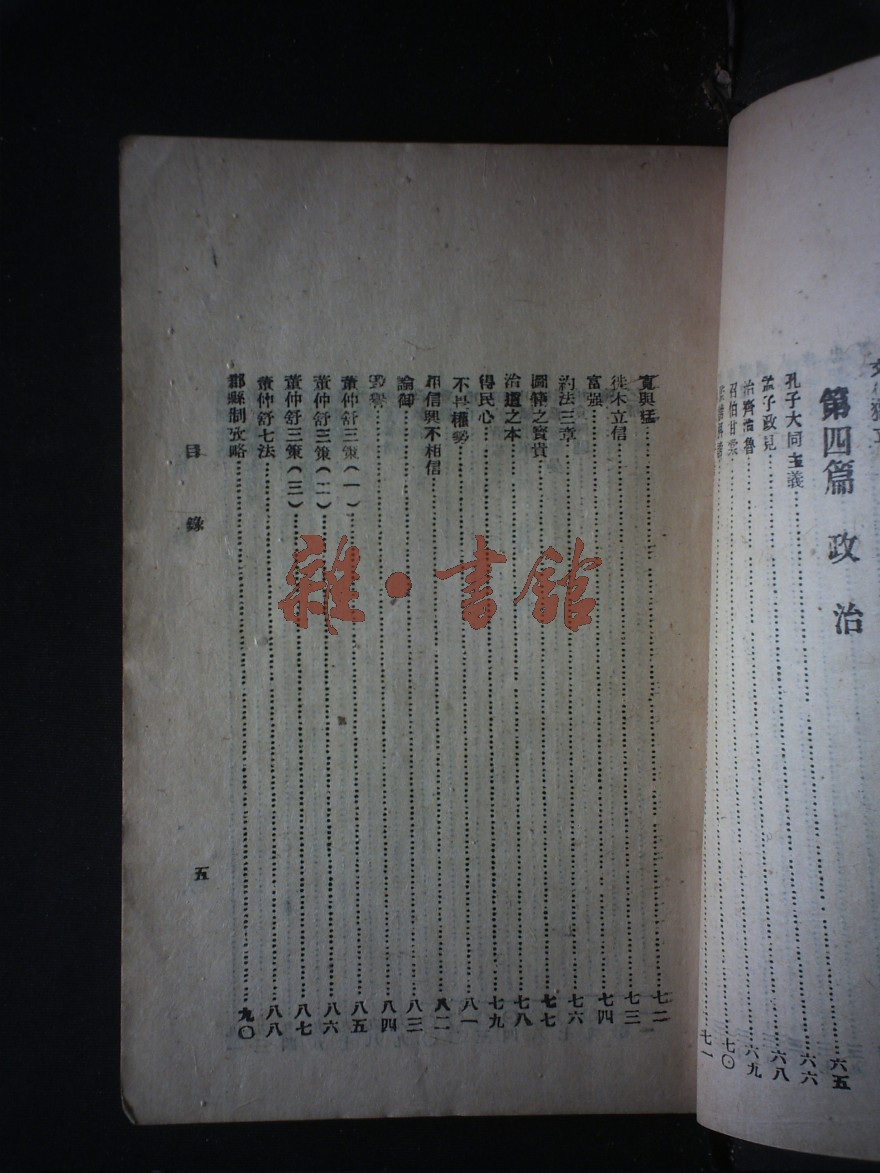 第四篇 政治
六五
孔子大同主義 六六
孟子政見 六八
治齊治魯 六九
召伯甘棠 七〇
七一
寬與猛 七二
徙木立信 七三
富强 七四
約法三章 七六
圖籍之寶貴 七七
治道之本 七八
得民心 七九
不畏權勢 八一
相信與不相信 八二
論御 八三
毀譽 八四
董仲舒三策(一) 八五
董仲舒三策(二) 八六
董仲舒三策(三) 八七
董仲舒七法 八八
郡縣制攷略 九〇
目錄
五
雜·書館